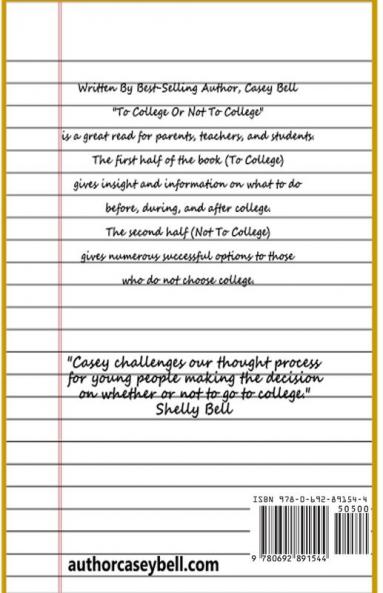 Written By Best-Selling Author, Casey Bell
"To College Or Not To College"
is a great read for parents, teachers, and students.
The first half of the book (To College)
gives insight and information on what to do
before, during, and after college.
The second half (Not To College)
gives numerous successful options to those
who do not choose college.
"Casey challenges our thought process
for young people making the decision
on whether or not to go to college."
Shelly Bell
ISBN 978-0-692-89154-4
50500
9 780692 891544
authorcaseybell.com